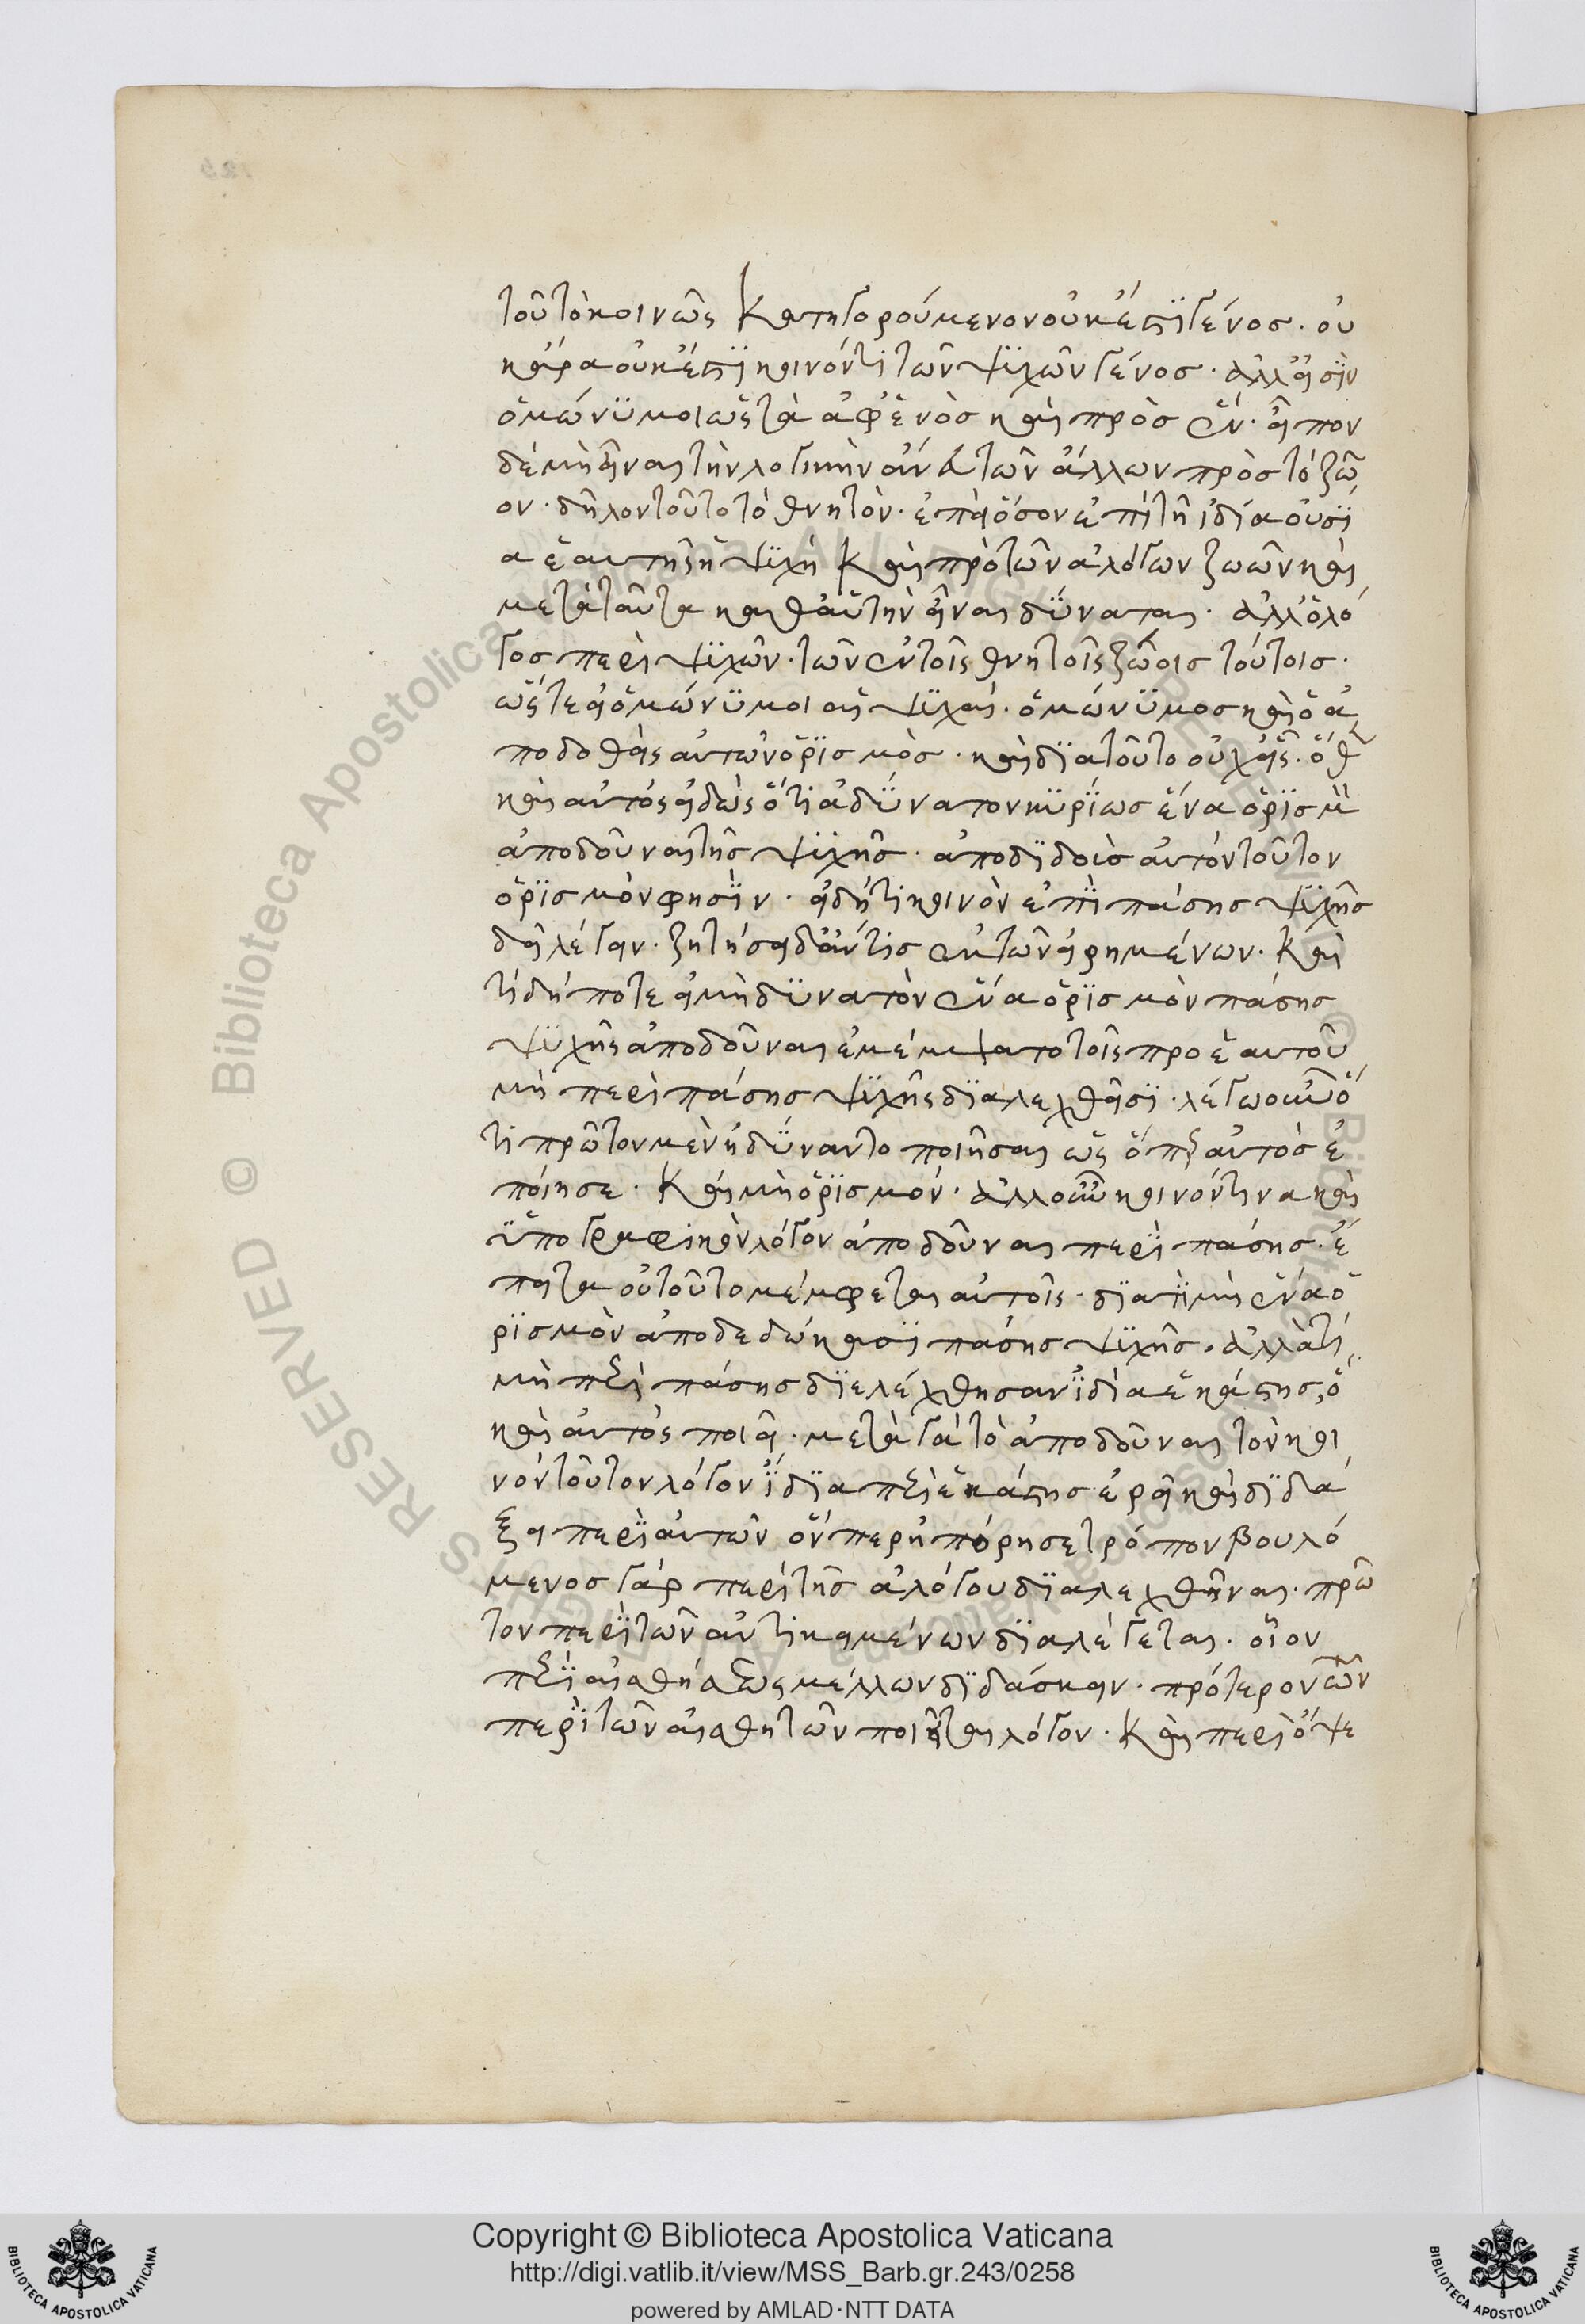 τοῦ τὸ κοινῶς κατηγορούμενον οὐκ ἔστι γένος. οὐ
κ ἄρα οὐκ ἔστι κοινόν τι τῶν ψυχῶν γένος. ἀλλ' εἰσὶν
ὁμώνυμοι ὡς τὰ ἀφ' ἑνὸς καὶ πρὸς ἕν. εἶπον
δὲ μὴ εἶναι τὴν λογικὴν ἄνευ τῶν ἄλλων πρὸς τὸ ζῶ
ον. δηλον τοῦτο τὸ θνητὸν. ἐπεὶ ὅσον ἐπὶ τῆ ἰδία οὐσί
α ἑαυτῆς ἡ ψυχὴ καὶ πρὸ τῶν ἀλόγων ζωῶν καὶ
μετὰ ταῦτα καθ' αὑτὴν εἶναι δύναται. ἀλλ' ὁ λό
γος περὶ ψυχῶν. τῶν ἐν τοῖς θνητοῖς ζώοις τούτοις.
ὥστε εἰ ὁμώνυμοι αἱ ψυχαί. ὁμώνυμος καὶ ὁ ἀ
ποδοθεὶς αὐτῶν ὁρισμὸς. καὶ διατοῦτο οὐχ εἷς. ὅθεν
καὶ αὐτὸς εἰδὼς ὅτι ἀδύνατον κυρίως ἕνα ὁρισμὸν
ἀποδοῦναι τῆς ψυχῆς. ἀποδιδοὺς αὐτὸν τοῦτον
ὁρισμὸν φησὶν. εἰ δή τι κοινὸν ἐπὶ πάσης ψυχῆς
δεῖ λέγειν. ζητήσει δ' ἄν τις ἐκ τῶν εἰρημένων. καὶ
τί δήποτε εἰ μὴ δυνατὸν ἕνα ὁρισμὸν πάσης
ψυχῆς ἀποδοῦναι ἐμέμψατο τοῖς προ ἑαυτοῦ
μὴ περὶ πάσης ψυχῆς διαλεχθεῖσι. λέγω οὖν ὅ
τι πρῶτον μὲν ἠδύναντο ποιῆσαι ὡς ὅπερ αὐτὸς ἐ
ποίησε. καὶ μὴ ὁρισμόν. ἀλλ' οὖν κοινόν τινα καὶ
ὑπογραφικὸν λόγον ἀποδοῦναι περὶ πάσης. ἔ
πειτα οὐ τοῦτο μέμφεται αὐτοῖς. διατί μὴ ἕνα ὁ
ρισμὸν ἀποδεδώκασι πάσης ψυχῆς. ἀλλὰ τί
μὴ περὶ πάσης διελέχθησαν ἰδία ἑκάστης, ὃ
καὶ αὐτὸς ποιεῖ. μετὰ γὰρ τὸ ἀποδοῦναι τὸν κοι
νόν τοῦτον λόγον ἰδία περὶ ἑκάστης ἐρεῖ καὶ διδά
ξει περὶ αὐτῶν ὅνπερ ἠπόρησε τρόπον βουλό
μενος γάρ περὶ τῆς ἀλόγου διαλεχθῆναι. πρῶ
τον περὶ τῶν ἀντικειμένων διαλέγεται. οἷον
περὶ αἰσθήσεως μέλλων διδάσκειν. πρότερον
περὶ τῶν αἰσθητῶν ποιεῖται λόγον. καὶ περὶ ὄψε
Copyright © Biblioteca Apostolica Vaticana
http://digi.vatlib.it/view/MSS_Barb.gr.243/0258
powered by AMLAD·NTT DATA